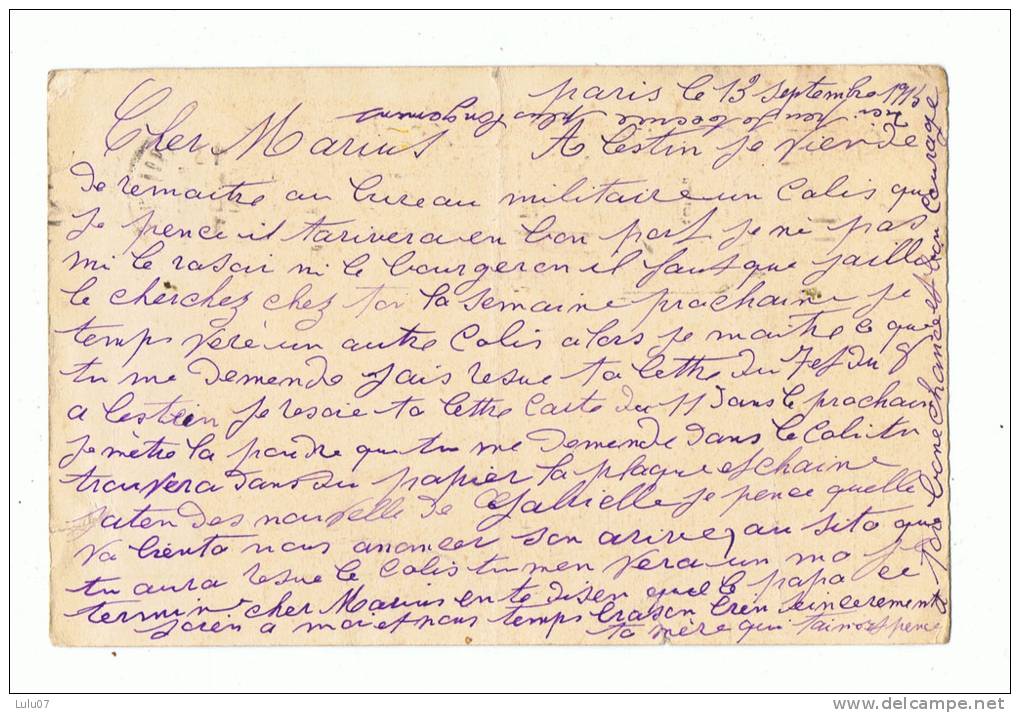 paris le 13 septembre 1915
Cher Marius A lestin je viende
De remaitre au bureau militaire un Colis que
je pence il tarivera en bon port je né pas
mi le rasoir ni le bourgeron il faut que jaille
le cherchez chez toi la semaine prochaine je
temps véré un autre Colis alors je maitre ce que
tu me demende jais resue ta lettre du 7 et du 8
a lestin je resoie ta lettre carte du 11 dans le prochain
je mètre la poudre que tu me demende dans le Coli tu
trouvera dans du papier la plaque et chaine
jaten des nouvelle de Gabrielle je pence quelle
va biento nous anoncer son arivé, au sito que
tu aura resue le Colis tu men vera un mo je
termine cher Marius en te disen que le papa ce
join a moi et nous temps brason bien sincerement
ta mère qui pence
bone chance et bon courage
Lulu07
delcampe.net